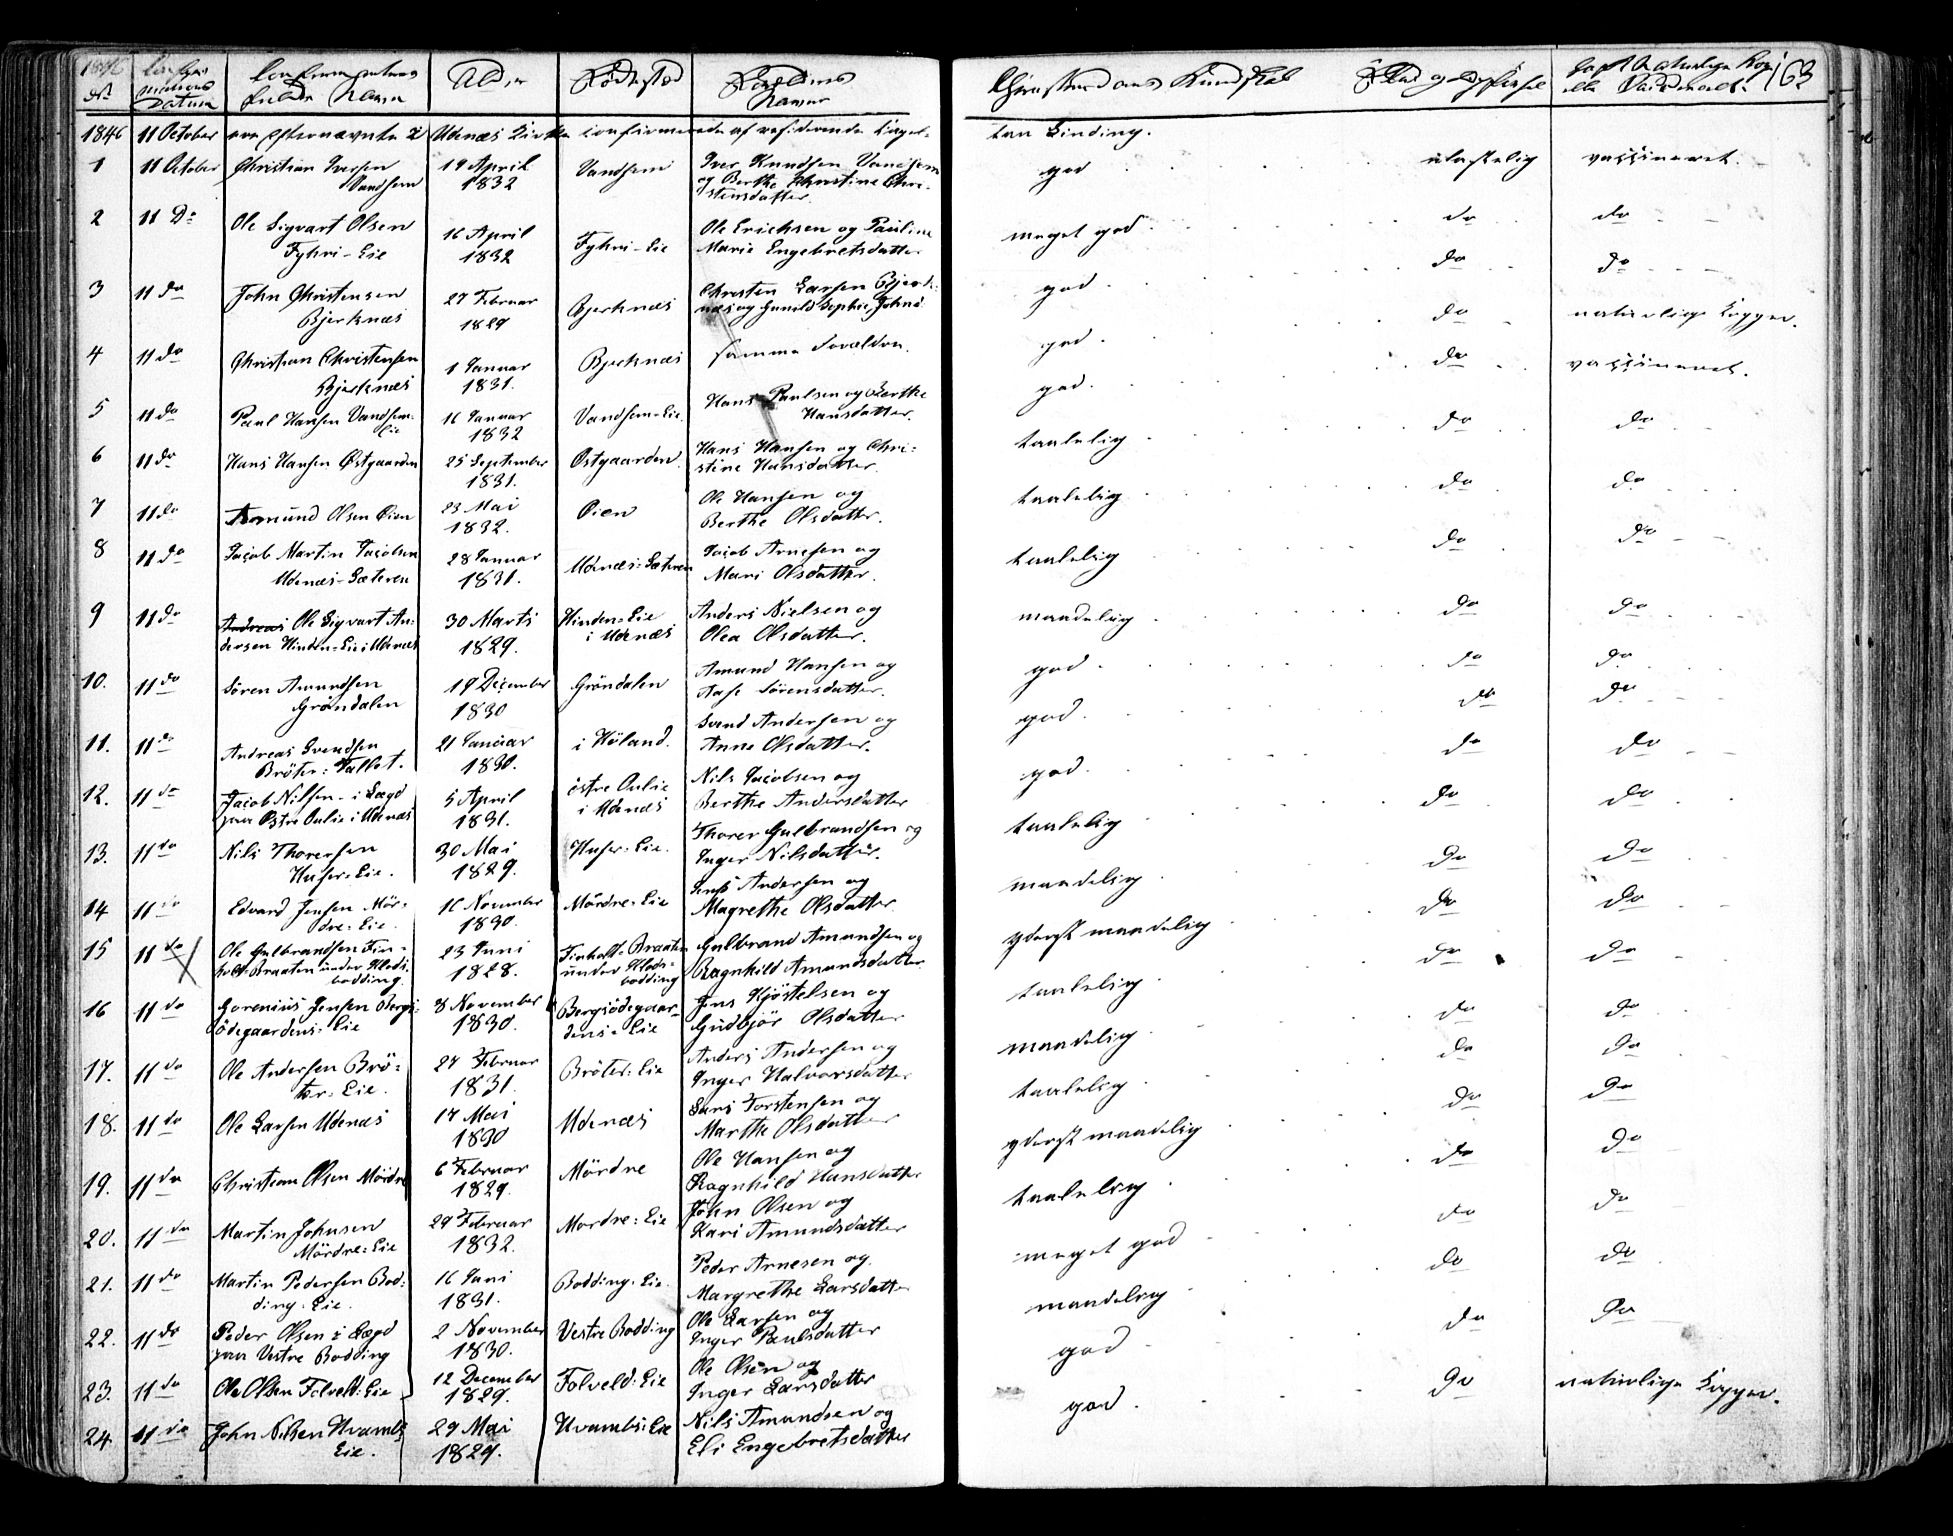 1846 № Confir- mations Datum Confirmanternes fulde Navn Alder Födested Forældrenes Navne Christendoms Kundskab Flid og Opförsel havt Naturlige Kop. ell. Vaccinerede 163
1846 11 October ere efternævnte i Udenæs Kirke confirmerede af residerende Capel- lan Linding.
1 11 October Christian Iversen Vandsem 19 April 1832 Vandsem Iver Knudsen Vandsem og Berthe Christine Chri- stensdatter. god ulastelig vaccineret.
2 11 Do Ole Sigvart Olsen Fyhri-Eie 16 April 1832 Fyhri-Eie Ole Erichsen og Pauline Marie Engebretsdatter meget god do do
3 11 do John Christensen Bjerknæs 27 Februar 1829 Bjerknæs Christen Larsen Bjerk- næs og Gunild Sophie Johns god do do
4 11 do Christian Christensen Bjerknæs 1 Januar 1831. Bjerknæs samme Forældre. god do naturlige Kopper.
5 11 do Paul Hansen Vandsem- Eie 16 Januar 1832 Vandsem-Eie Hans Paulsen og Berthe Hansdatter. god. do vaccineret.
6 11 do Hans Hansen Østgaarden 25 September 1831. Østgaarden. Hans Hansen og Chri- stine Hansdatter. taalelig do do
7 11 do Amund Olsen Oien 23 Mai 1832. Oien Ole Hansen og Berthe Olsdatter. taalelig do do
8 11 do Jacob Martin Jacobsen Udenæs-Sæteren 28 Januar 1831. Udenæs-Sæteren Jacob Arnesen og Mari Olsdatter. taalelig do do
9 11 do Andreas Ole Sigvart An- dersen Hinden-Eie i Udenæs 30 Marts 1829. Hinden-Eie i Udenæs Anders Nielsen og Olea Olsdatter. maadelig do do
10. 11 do Sören Amundsen Gröndalen 19 December 1830 Gröndalen Amund Hansen og Aase Sörensdatter. god do do
11. 11 do Andreas Svendsen Bröter: Tallet. 21 Januar 1830. i Höland. Svend Andersen og Anne Olsdatter. god do do
12. 11 do Jacob Nilsen - i Lægd paa Østre Oulie i Udenæs 5 April 1831. östre Oulie i Udenæs Nils Jacobsen og Berthe Andersdatter god do do
13. 11 do Nils Thorersen Huser-Eie. 30 Mai 1829. Huser-Eie. Thorer Gulbrandsen og Inger Nilsdatter. taalelig do do
14 11 do Edvard Jensen Mör- dre-Eie. 16 November 1830. Mördre-Eie Jens Andersen og Magrethe Olsdatter maadelig do do
15 11 do Ole Gulbrandsen Fin- holt-Braaten under Klods- bodding. 23 Juni 1828. Finholt-Braaten under Klods- bodding Gulbrand Amundsen og Ragnhild Amundsdatter yderst maadelig do do
16 11 do Gorenius Jensen Bergs- ödegaardens-Eie 8 November 1830. Bergsödegaar- dens-Eie Jens Kjöstelsen og Gudbjör Olsdatter taalelig do do
17. 11 do Ole Andersen Brö- ter-Eie. 27 Februar 1831. Bröter-Eie Anders Andersen og Inger Halvorsdatter maadelig do do
18. 11 do Ole Larsen Udenæs 17 Mai 1830 Udenæs Lars Torstensen og Marthe Olsdatter taalelig do do
19. 11 do Christian Olsen Mördre 6 Februar 1829. Mördre Ole Hansen og Ragnhild Hansdatter yderst maadelig do do
20. 11 do Martin Johnsen Mördre-Eie 29 Februar 1832. Mördre-Eie John Olsen og Kari Amundsdatter taalelig do do
21. 11 do Martin Pedersen Bod- ding-Eie. 16 Juni 1831. Bodding-Eie. Peder Arnesen og Margrethe Larsdatter meget god do do
22. 11 do Peder Olsen i Lægd paa Vestre Bodding 2 November 1830. Vestre Bodding Ole Larsen og Inger Paulsdatter maadelig do do
23. 11 do Ole Olsen Folveld-Eie 12 December 1829. Folveld-Eie Ole Olsen og Inger Larsdatter god do do
24. 11 do John Nilsen Hvambs Eie. 29 Mai 1829. Hvambs-Eie Nils Amundsen og Eli Engebretsdatter god do naturlige Kopper.